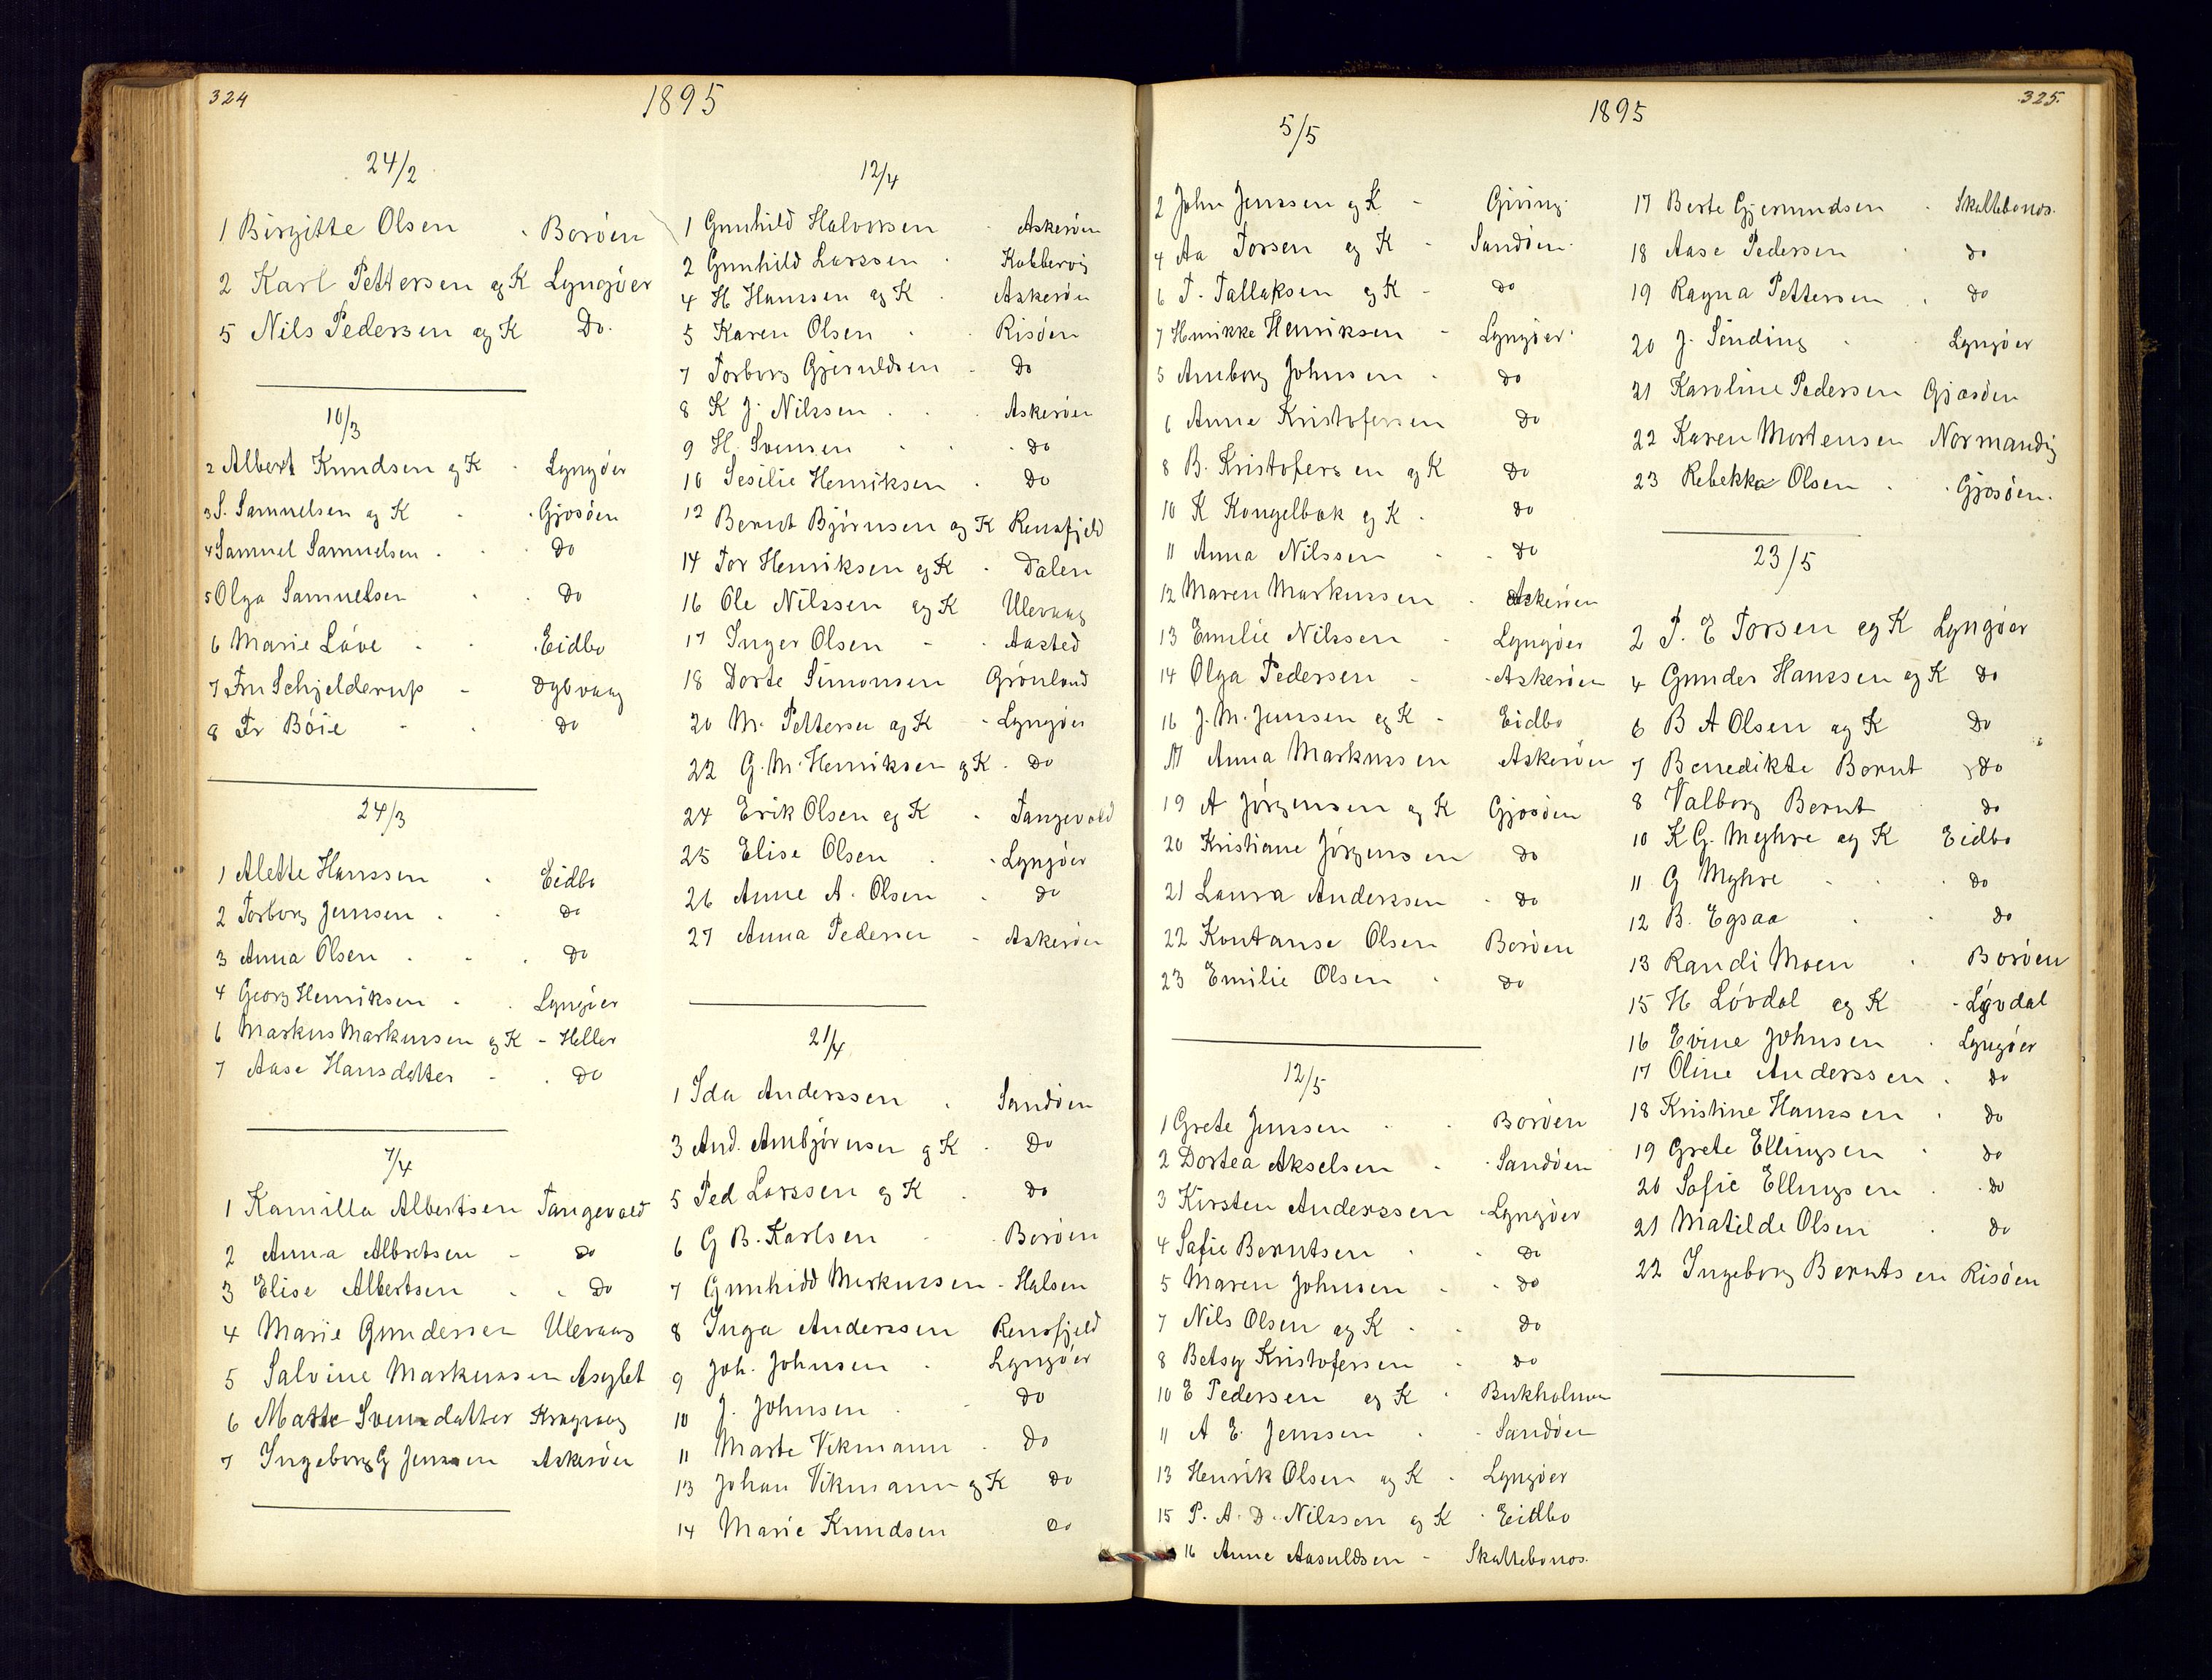 324
1895
24/2
1 Birgitte Olsen - Borøen
2 Karl Pettersen og K Lyngøer
5 Nils Pedersen og K Do.
10/3
2 Albert Knudsen og K - Lyngøer
3 S. Samuelsen og K - Gjosøen
4 Samuel Samuelsen - Do
5 Olga Samuelsen - Do
6 Marie Løve - Eidbo
7 Fru Schjelderup - Dybvaag
8 Fr Bøie - Do
24/3
1 Alette Hanssen - Eidbo
2 Torborg Jenssen - Do
3 Anna Olsen - Do
4 Georg Henriksen - Lyngøer
6 Markus Markussen og K - Heller
7 Aase Hansdatter - Do
7/4
1 Kamilla Albertsen Tangevald
2 Anna Albretsen - Do
3 Elise Albertsen - Do
4 Marie Gundersen Ulevaag
5 Salvine Markussen Asylet
6 Marte Svendatter Kragvaag
7 Ingeborg G Jenssen Askerøen
12/4
1 Gunhild Halvorsen - Askerøen
2 Gunhild Larssen - Kabbervig
4 H Hanssen og K - Askerøen
5 Karen Olsen - Risøen
7 Torborg Gjeruldsen - Do
8 K J. Nilssen - Askerøen
9 H. Svensen - Do
10 Sesilie Henriksen - Do
12 Bernt Bjørnsen og K Rensfjeld
14 Tor Henriksen og K - Dalen
16 Ole Nilssen og K Ulevaag
17 Inger Olsen - Aasted
18 Dorte Simonsen Grønland
20 M. Pettersen og K - Lyngøer
22 G. M. Henriksen og K - Do
24 Erik Olsen og K - Tangevald
25 Elise Olsen - Lyngøer
26 Anne A. Olsen - Do
27 Anna Pedersen - Askerøen
21/4
1 Ida Anderssen - Sandøen
3 And. Ambjørnsen og K - Do
5 Ped Larssen og K - Do
6 G B. Karlsen - Borøen
7 Gunhild Markussen - Halsen
8 Inga Anderssen Rensfjeld
9 Joh. Johnsen - Lyngøer
10 J. Johnsen - Do
11 Marte Vikmann - Do
13 Johan Vikmann og K Do
14 Marie Knudsen Do
325.
1895
5/5
2 John Jenssen og K - Giving.
4 Aa Torsen og K - Sandøen.
6 T. Tallaksen og K - Do
7 Henrikke Henriksen - Lyngøer
5 Amborg Johnsen - Do
6 Anne Kristofersen Do
8 B. Kristofersen og K Do
10 K Kongelbæk og K - Do
11 Anna Nilssen - Do
12 Maren Markussen - Askerøen
13 Emilie Nilssen - Lyngøer
14 Olga Pedersen - Askerøen
16 J. M. Jenssen og K - Eidbo
17 Anna Markussen Askerøen
19 A Jørgensen og K Gjosøen
20 Kristiane Jørgensen Do
21 Laura Anderssen - Do
22 Kontanse Olsen Borøen
23 Emilie Olsen - Do
12/5
1 Grete Jenssen - Borøen
2 Dortea Akselsen - Sandøen
3 Kirsten Anderssen - Lyngøer
4 Sofie Berntsen - Do
5 Maren Johnsen - Do
7 Nils Olsen og K - Do
8 Betsy Kristofersen - Do
10 E Pedersen og K - Bukholmen
11 A E. Jenssen - Sandøen
13 Henrik Olsen og K - Lyngøer
15 P. A. D. Nilssen og K - Eidbo
16 Anne Aasuldsen - Skaltebonos.
17 Berte Gjermundsen - Skaltebonos.
18 Aase Pedersen - Do
19 Ragna Pettersen - Do
20 J. Sinding - Lyngøer
21 Karoline Pedersen Gjosøen
22 Karen Mortensen Normandig
23 Rebekka Olsen - Gjosøen.
23/5
2 T. E Torsen og K Lyngøer
4 Gunder Hanssen og K Do
6 B A Olsen og K Do
7 Benedikte Bernt Do
8 Valborg Bernt Do
10 K G. Myhre og K Eidbo
11 G Myhre - Do
12 B. Egsaa - Do
13 Randi Moen - Borøen
15 H Løvdal og K - Løvdal
16 Evine Johnsen - Lyngøer
17 Oline Anderssen - Do
18 Kristine Hanssen - Do
19 Grete Ellingsen - Do
20 Sofie Ellingsen - Do
21 Matilde Olsen - Do
22 Ingeborg Berntsen Risøen